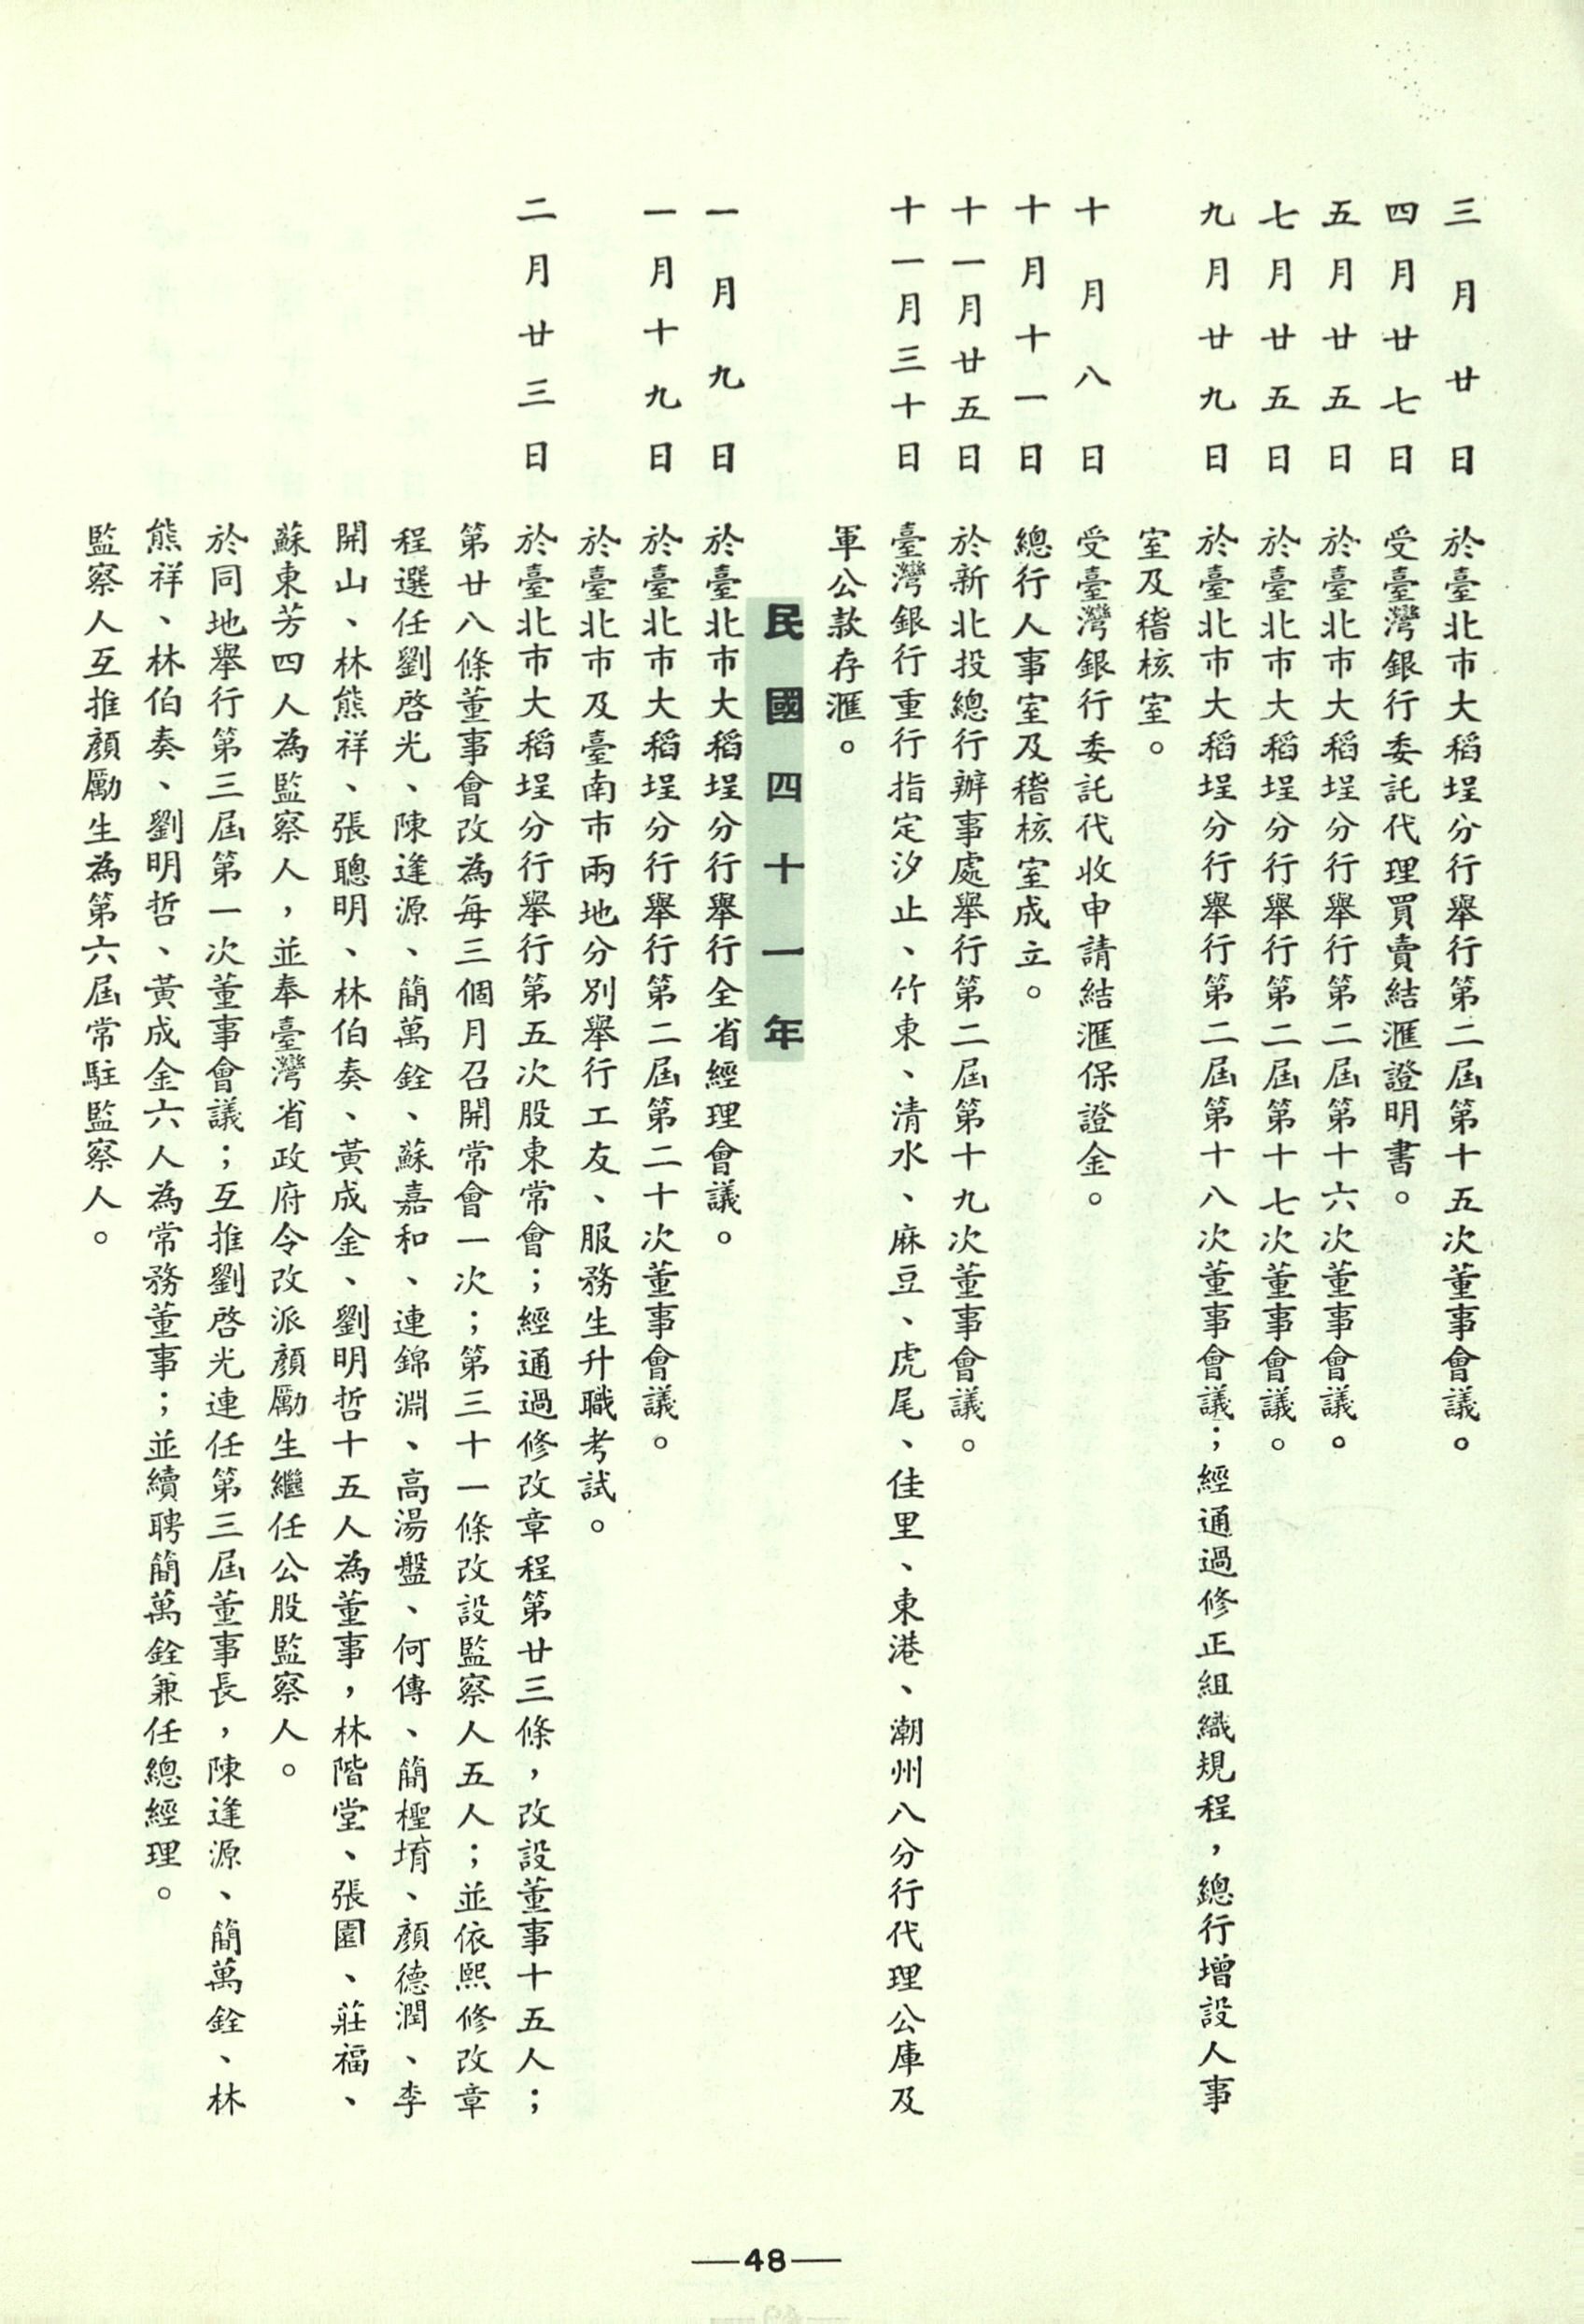 三月廿日　於臺北市大稻埕分行舉行第二屆第十五次董事會議。
四月廿七日　受臺灣銀行委託代理買賣結滙證明書。
五月廿五日　於臺北市大稻埕分行舉行第二屆第十六次董事會議。
七月廿五日　於臺北市大稻埕分行舉行第二屆第十七次董事會議。
九月廿九日　於臺北市大稻埕分行舉行第二屆第十八次董事會議；經通過修正組織規程，總行增設人事
室及稽核室。
十月八日　受臺灣銀行委託代收申請結滙保證金。
十月十一日　總行人事室及稽核室成立。
十一月廿五日　於新北投總行辦事處舉行第二屆第十九次董事會議。
十一月三十日　臺灣銀行重行指定汐止、竹東、清水、麻豆、虎尾、佳里、東港、潮州八分行代理公庫及
軍公款存滙。
民國四十一年
一月九日　於臺北市大稻埕分行舉行全省經理會議。
一月十九日　於臺北市大稻埕分行舉行第二屆第二十次董事會議。
於臺北市及臺南市兩地分別舉行工友、服務生升職考試。
二月廿三日　於臺北市大稻埕分行舉行第五次股東常會；經通過修改章程第廿三條，改設董事十五人；
第廿八條董事會改為每三個月召開常會一次；第三十一條改設監察人五人；並依熙修改章
程選任劉啓光、陳逢源、簡萬銓、蘇嘉和、連錦淵、高湯盤、何傳、簡檉堉、顏德潤、李
開山、林熊祥、張聰明、林伯奏、黃成金、劉明哲十五人為董事，林階堂、張園、莊福、
蘇東芳四人為監察人，並奉臺灣省政府令改派顏勵生繼任公股監察人。
於同地舉行第三屆第一次董事會議；互推劉啓光連任第三屆董事長，陳逢源、簡萬銓、林
熊祥、林伯奏、劉明哲、黃成金六人為常務董事；並續聘簡萬銓兼任總經理。
監察人互推顏勵生為第六屆常駐監察人。
—48—